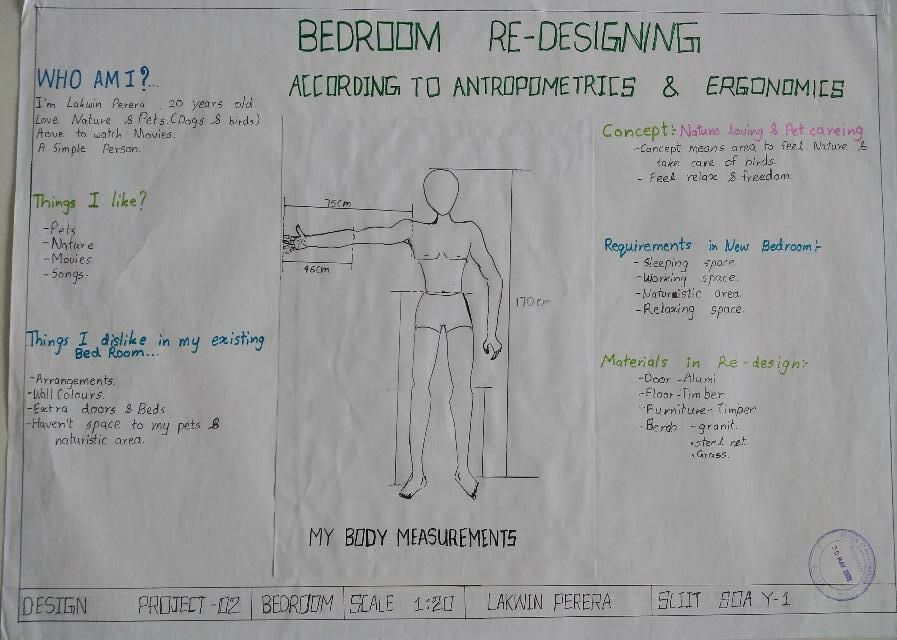 BEDROOM RE-DESIGNING
ACCORDING TO ANTROPOMETRICS & ERGONOMICS
WHO AM I?...
I'm Lakwin Perera, 20 years old.
Love Nature & Pets.(Dogs & birds)
Hove to watch Movies.
A Simple Person.
Things I like?
-Pets
-Nature
-Movies.
-Songs.
Things I dislike in my existing
Bed Room...
-Arrangements.
-Wall Colours.
-Extra doors & Beds
-Haven't space to my pets &
naturistic area.
75cm
46cm
170cm
MY BODY MEASUREMENTS
Concept:- Nature loving & Pet careing
-Concept means area to feel Nature &
take care of birds.
- Feel relax & freedom.
Requirements in New Bedroom:-
-Sleeping space.
-Working space.
-Naturistic area.
-Relaxing space.
Materials in Re-design:-
-Door -Alumi
-Floor-Timber
-Furniture-Timper.
-granit.
•steel net.
•Grass.
30 MAY 2022
DESIGN PROJECT-02 BEDROOM SCALE 1:20 LAKWIN PERERA SLIIT SOA Y-1